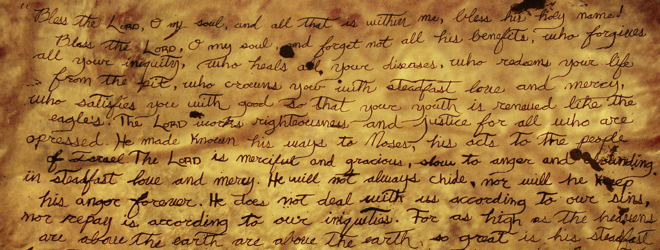 "Bless the LORD, O my soul, and all that is within me, bless his holy name!
Bless the LORD, O my soul, and forget not all his benefits, who forgives
all your iniquity, who heals all your diseases, who redeems your life
from the pit, who crowns you with steadfast love and mercy,
who satisfies you with good so that your youth is renewed like the
eagle's. The LORD works righteousness and justice for all who are
opressed. He made known his ways to Moses, his acts to the people
of Israel The LORD is merciful and gracious, slow to anger and abounding.
in steadfast love and mercy. He will not always chide, nor will he keep
his anger forever. He does not deal with us according to our sins,
nor repay is according to our iniquities. For as high as the heavens
are above the earth are above the earth, so great is his steadfast